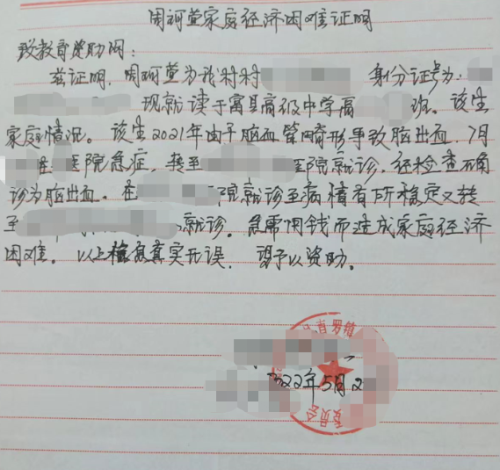 周珂萱家庭经济困难证明
致教育资助网:
兹证明,周珂萱为我村村 身份证号为:
现就读于富县高级中学高 班。该生
家庭情况。该生2021年由于脑血管畸形导致脑出血,7月
医院急症,转至 医院就诊,经检查不确
诊为脑出血。在 院就诊至病情有所稳定又转
至 就诊。急需用钱而造成家庭经济
困难。以上信息真实无误,望予以资助。
22年5月2
委员会